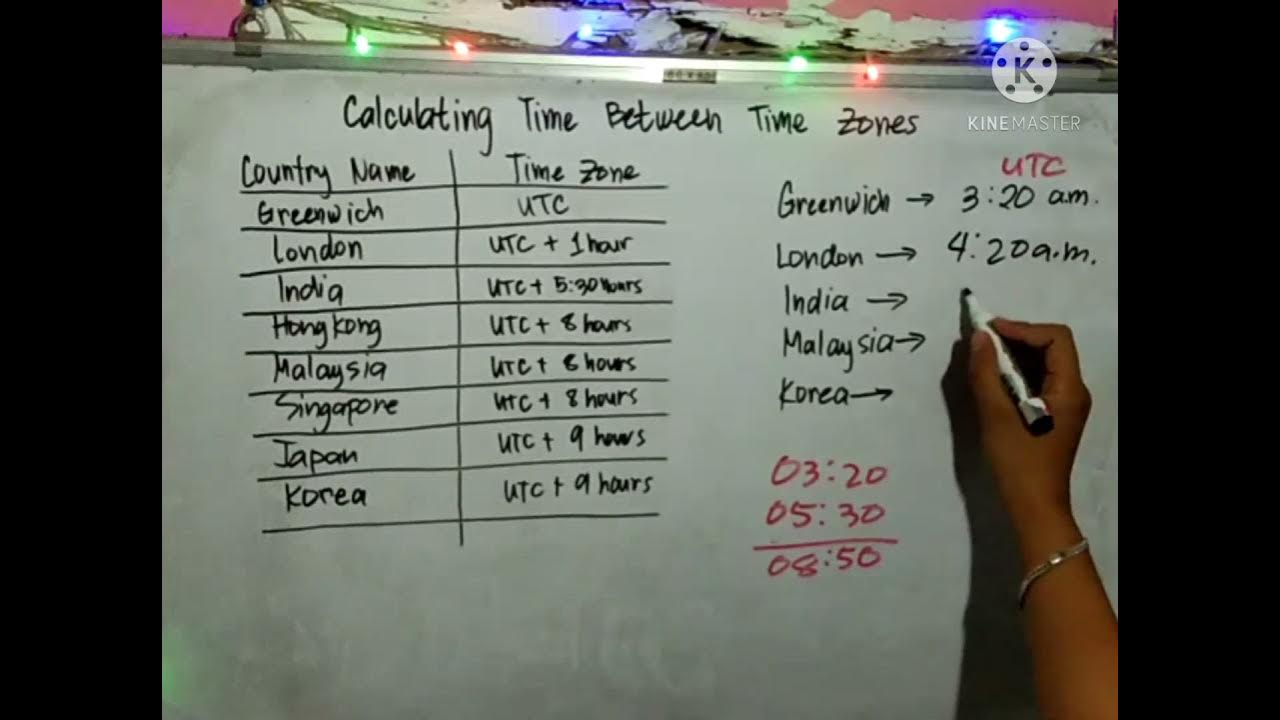 K
KINEMASTER
Calculating Time Between Time Zones
Country Name Time Zone
Greenwich UTC
London UTC + 1 hour
India UTC + 5:30 hours
Hongkong UTC + 8 hours
Malaysia UTC + 8 hours
Singapore UTC + 8 hours
Japan UTC + 9 hours
Korea UTC + 9 hours
UTC
Greenwich → 3:20 am.
London → 4:20 a.m.
India →
Malaysia →
Korea →
03:20
05:30
08:50